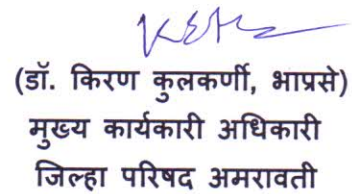 (डॉ. किरण कुलकर्णी, भाप्रसे)
मुख्य कार्यकारी अधिकारी
जिल्हा परिषद अमरावती